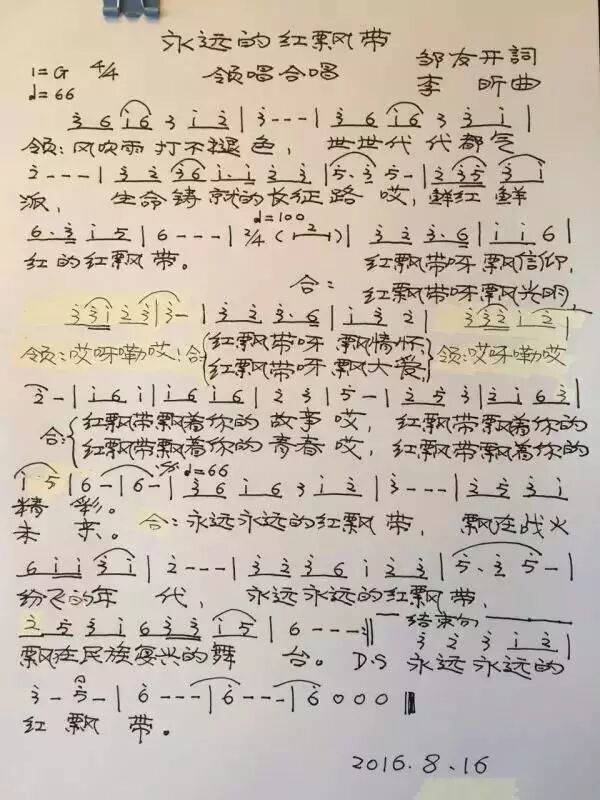 永远的红飘带
1=G 4/4 领唱合唱 邹友开詞
♩=66 李昕曲
3 6 i6 3 i2 | 3 - - - | 3 6 i6 3 3 i |
领:风吹雨打不褪色， 世世代代都气
2 - - - | 3 2 36 i·i 23 | 5·3 5 - | 2 35 3 i |
派， 生命铸就的长征路哎，鲜红鲜
♩=100
6·3 i 5 | 6 - - - | 2/4 ( 2 ) | 3 2 3·6 | i i 6 |
红的红飘带。 红飘带呀飘信仰，
合: 红飘带呀飘光明，
3 3i 23 | 3 - | 3 2 3·6 | i 3 2 | 3 32 i 2 |
领:哎呀嘞哎!合 红飘带呀飘情怀 领:哎呀嘞哎
红飘带呀飘大爱
2 - | i 6 i | i 6 i 6 | 2 2 3 | 5 - | 2 5 3 | 2 i 6 3 |
合: 红飘带飘着你的故事哎，红飘带飘着你的
红飘带飘着你的青春哎，红飘带飘着你的
♩=66
i 5 | 6 - | 6 - | 3 6 i 6 3 i 2 | 3 - - - | 2 5 3 i |
精彩。
未来。 合:永远永远的红飘带，飘在战火
6 i i 3 i | 2 - - - | 3 2 3 6 i 2 3 | 5·3 5 - |
纷飞的年代，永远永远的红飘带，
结束句
2 5 3 i 6 3 3 i 5 | 6 - - - :|| 3 2 3 i 2 |
飘在民族复兴的舞台。D.S 永远永远的
3 - 5 - | 6 - - - | 6 - - - | 6 0 0 0 ||
红飘带。
2016.8.16